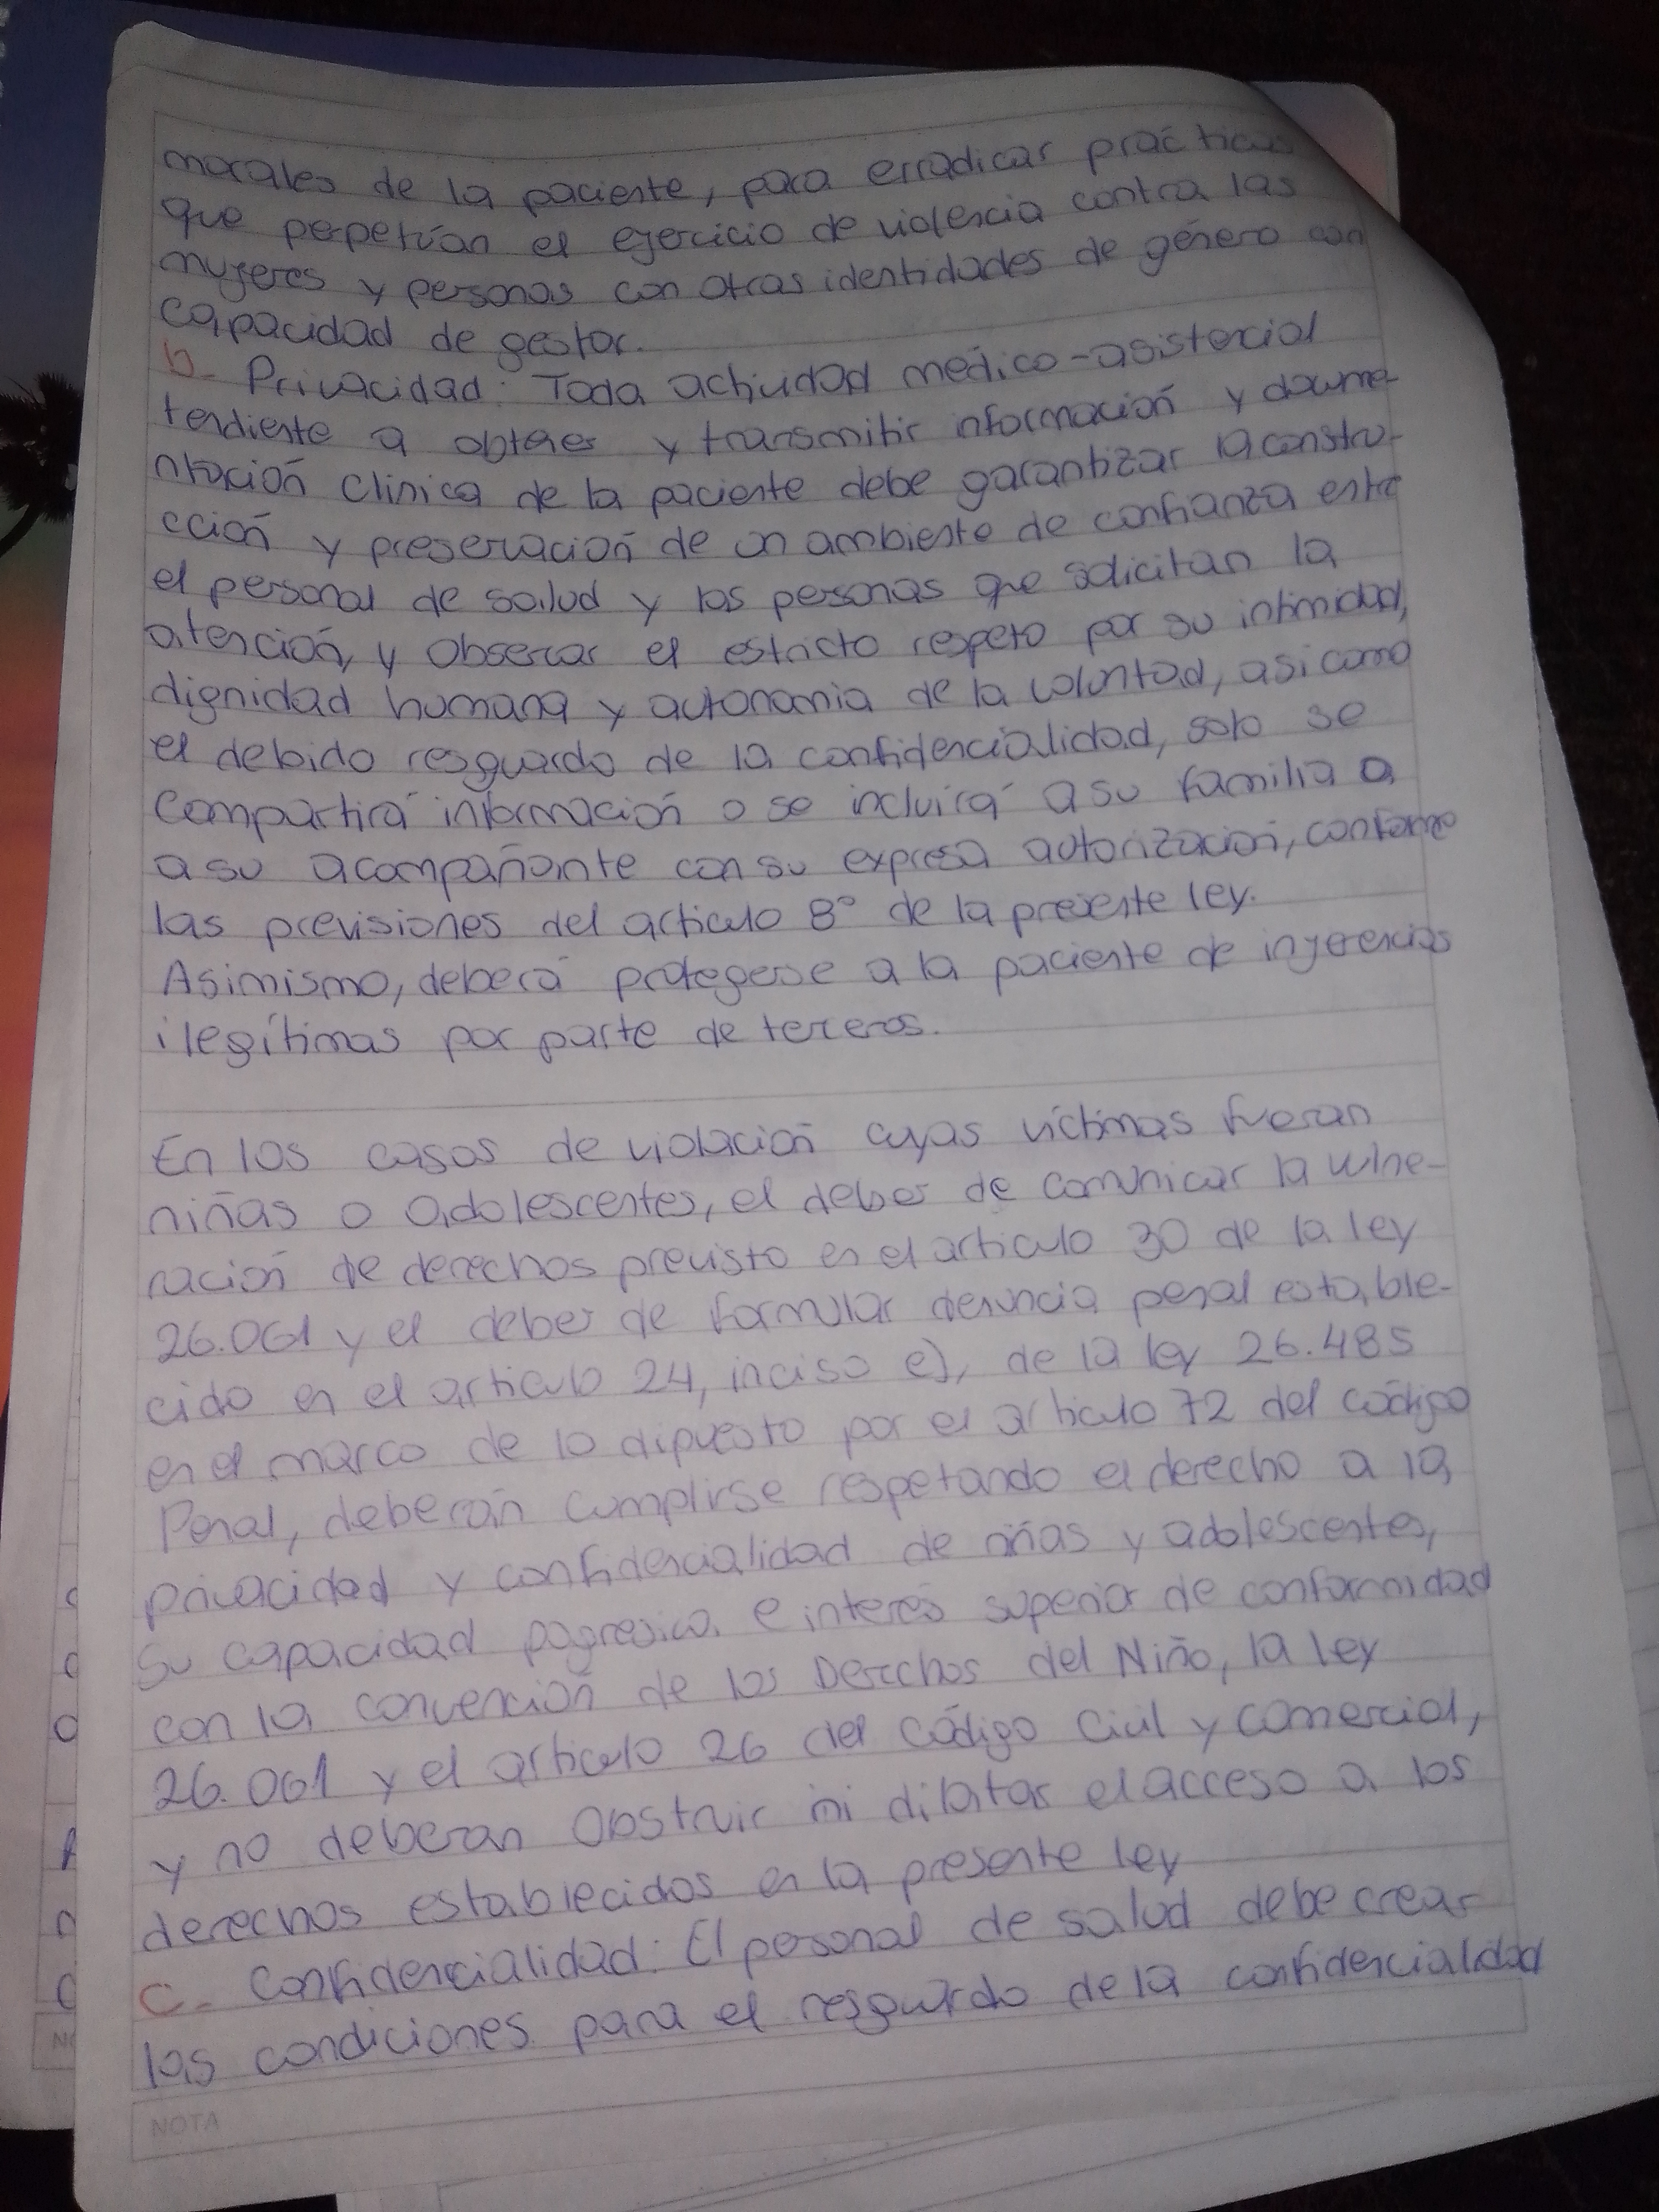 morales de la paciente, para erradicar practicas
que perpetúan el ejercicio de violencia contra las
mujeres y personas con otras identidades de género con
capacidad de gestar.
b- Privacidad: Toda actividad médico-asistencial
tendiente a obtener y transmitir información y docume-
ntación clinica de la paciente debe garantizar la constru-
cción y preservación de un ambiente de confianza entre
el personal de salud y las personas que solicitan la
atención, y observar el estricto respeto por su intimidad,
dignidad humana y autonomia de la voluntad, asi como
el debido resguardo de la confidencialidad, solo se
compartirá información o se incluirá a su familia o
a su acompañante con su expresa autorización, conforme
las previsiones del articulo 8° de la presente ley.
Asimismo, deberá protegerse a la paciente de injerencias
ilegítimas por parte de terceros.
En los casos de violación cuyas víctimas fueran
niñas o adolescentes, el deber de comunicar la vulne-
ración de derechos previsto en el articulo 30 de la ley
26.061 y el deber de formular denuncia penal estable-
cido en el articulo 24, inciso e), de la ley 26.485
en el marco de lo dipuesto por el articulo 72 del código
Penal, deberán cumplirse respetando el derecho a la
privacidad y confidencialidad de niñas y adolescentes,
su capacidad pogresiva e interés superior de conformidad
con la convención de los Derechos del Niño, la ley
26.061 y el articulo 26 del Código Civil y comercial,
y no deberan obstruir ni dilatar el acceso a los
derechos establecidos en la presente ley
c- Confidencialidad: El personal de salud debe crear
las condiciones para el resguardo de la confidencialidad
NOTA